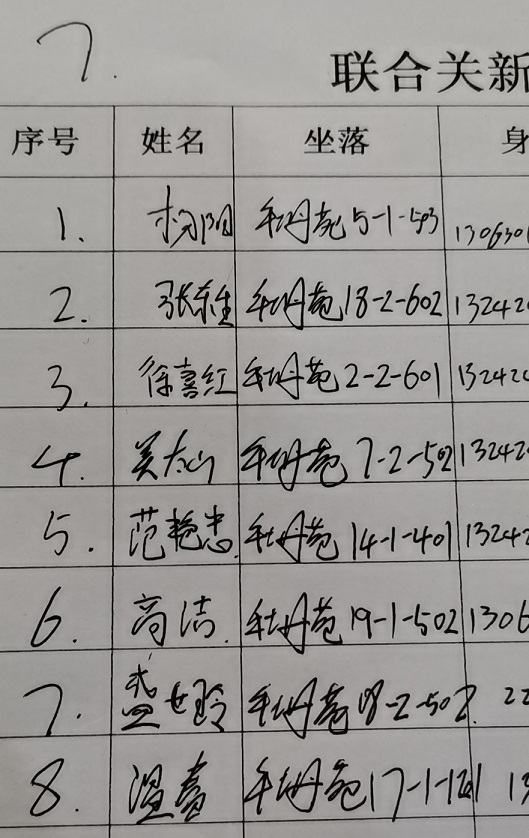 7.
联合关新
序号 姓名 坐落 身
1. 杨阳 牡丹苑5-1-503 1306301
2. 张东生 牡丹苑18-2-602 13242
3. 徐喜红 牡丹苑2-2-601 132420
4. 关大山 牡丹苑7-2-502 132420
5. 范艳忠 牡丹苑14-1-401 13242
6. 高洁. 牡丹苑19-1-502 1306
7. 盛世玲 牡丹苑18-2-502. 22
8. 温 牡丹苑17-1-1201 13